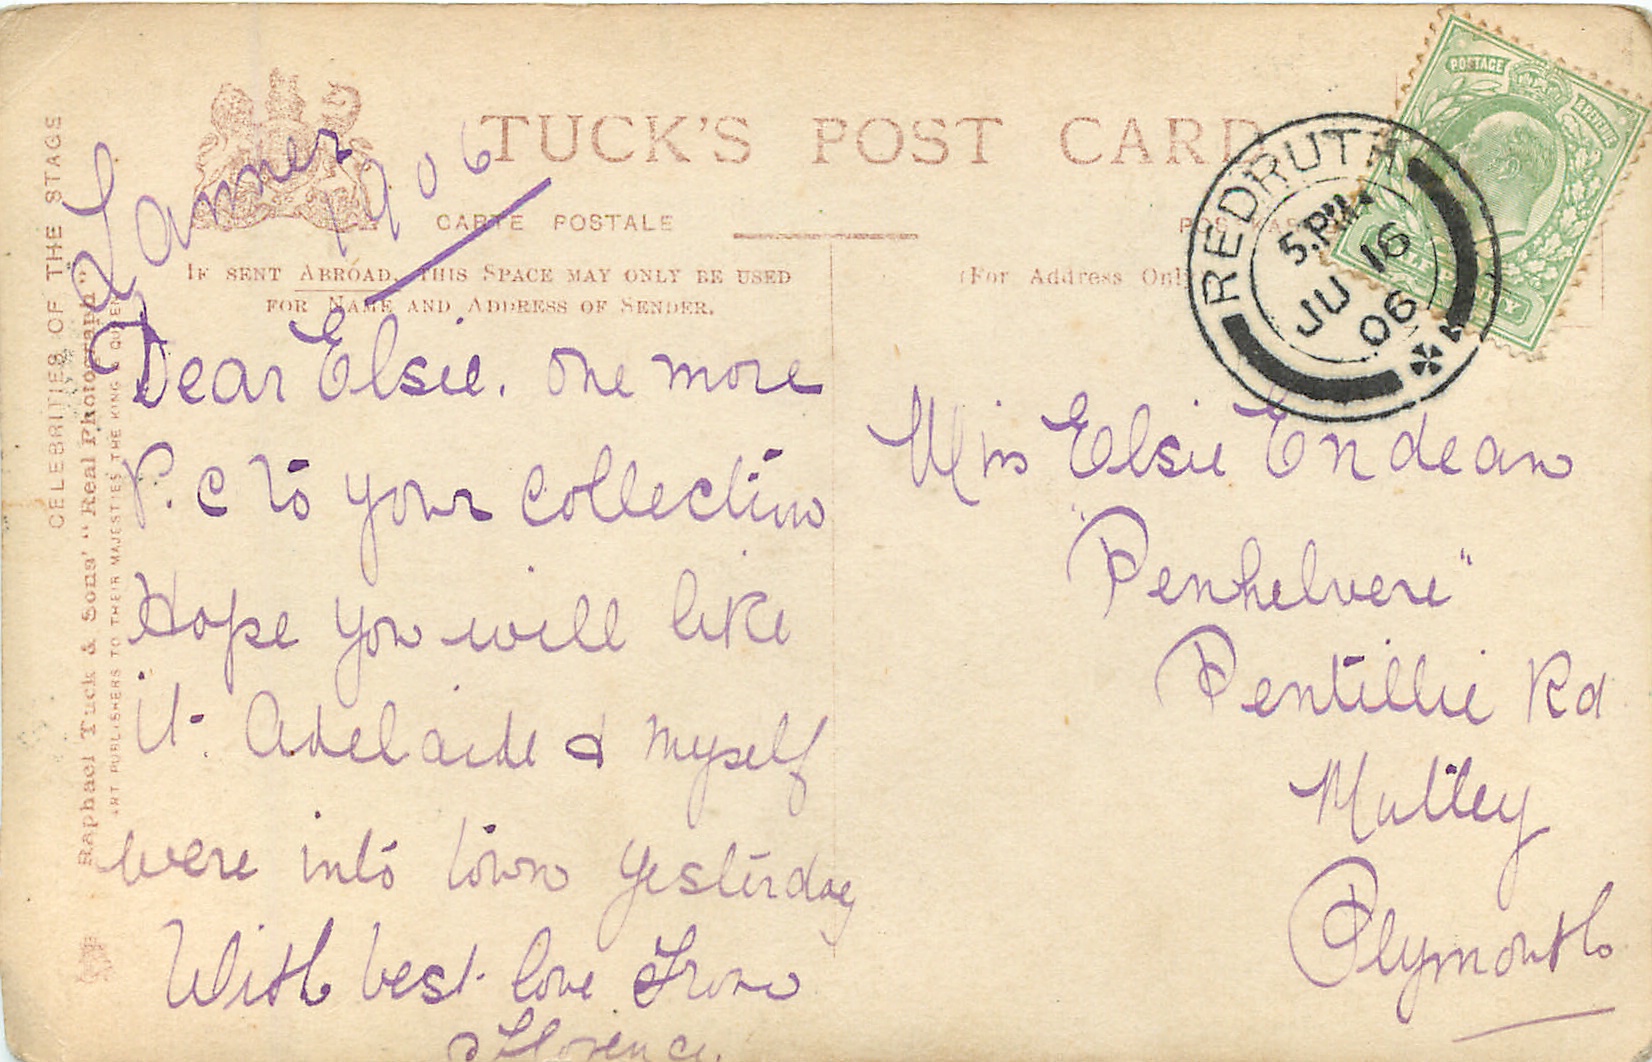 TUCK'S POST CARD
CARTE POSTALE
IF SENT ABROAD, THIS SPACE MAY ONLY BE USED
FOR NAME AND ADDRESS OF SENDER.
(For Address Only
CELEBRITIES OF THE STAGS
Raphael Tuck & Sons' "Real Photograph"
ART PUBLISHERS TO THEIR MAJESTIES THE KING & QUEEN
Lanner
1906
Dear Elsie. One more
P.C to your collection
Hope you will like
it. Adelaide & myself
were into town yesterday
With best love From
Florence.
POSTAGE
& REVENUE
REDRUTH
5.PM
JU 16
06
Miss Elsie Endean
"Penhelvere"
Pentillie Rd
Mutley
Plymouth